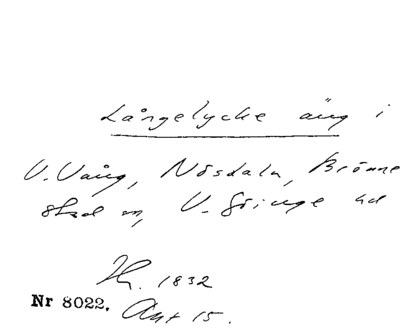 Långelycke äng i
V. Vång, Nösdala, Brönne
stad m, V. Göinge hd
Hr. 1832
Nr 8022. Akt 15.